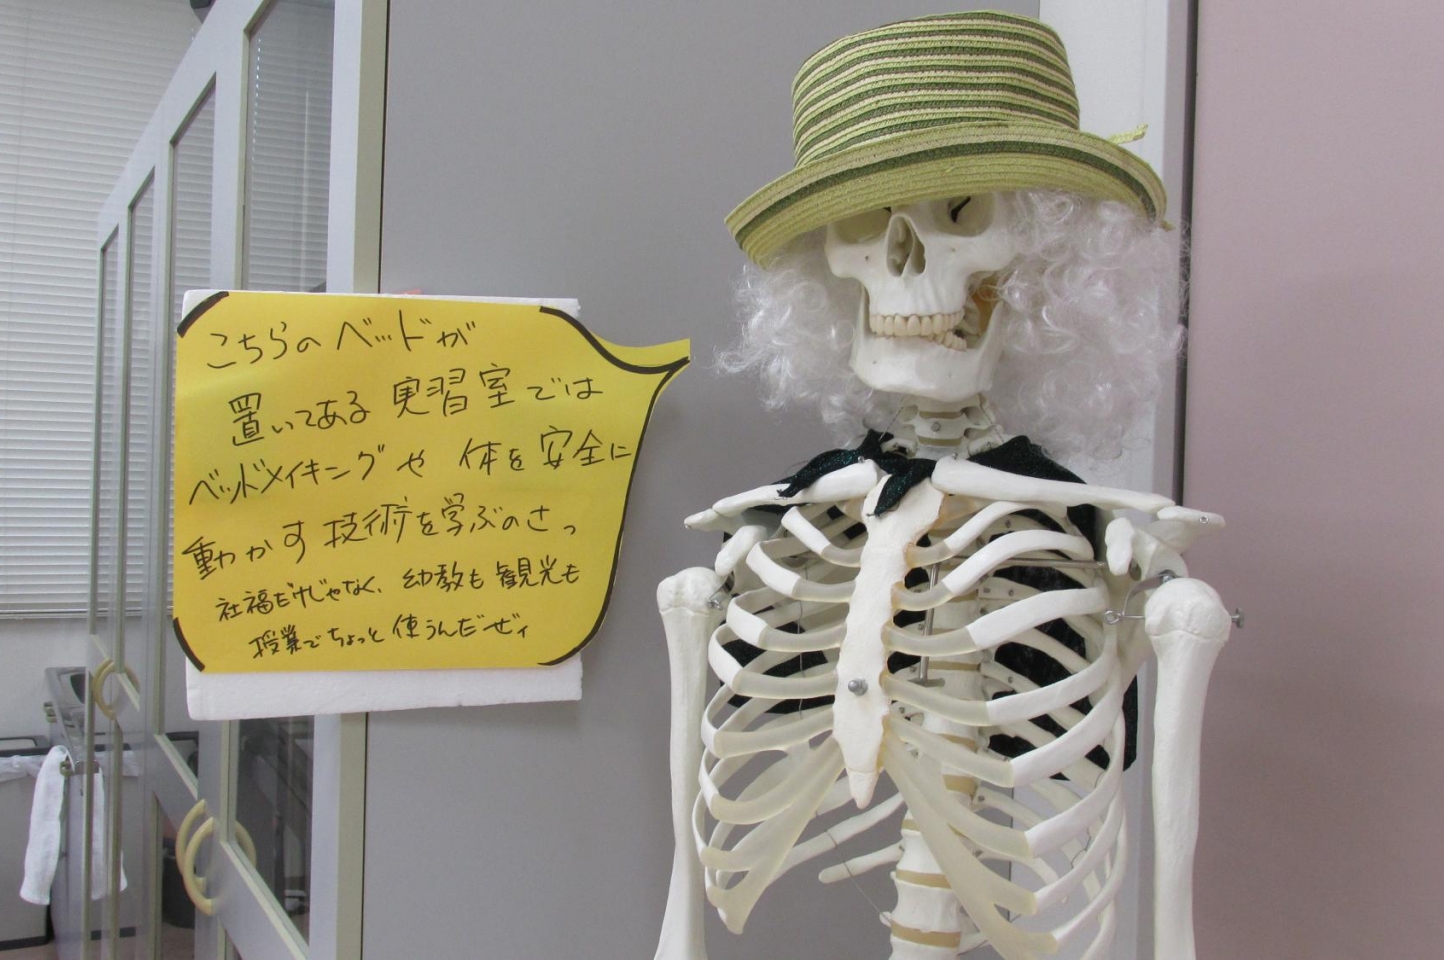 こちらのベッドが
置いてある実習室では
ベッドメイキングや体を安全に
動かす技術を学ぶのさっ
社福だけじゃなく、幼教も観光も
授業でちょっと使うんだぜィ